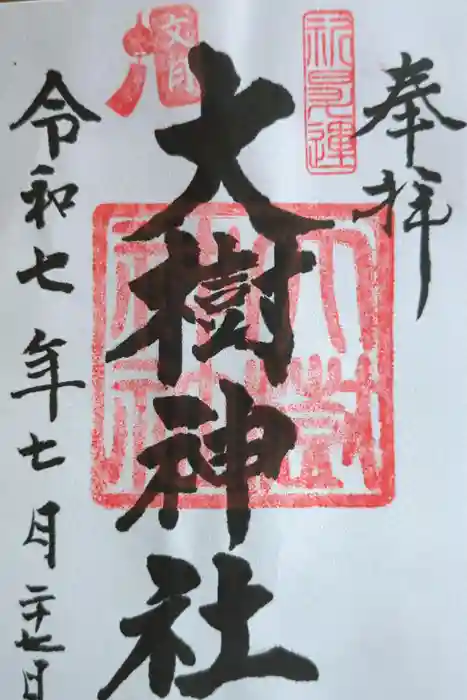 奉拝
大樹神社
令和七年七月二十七日
文月